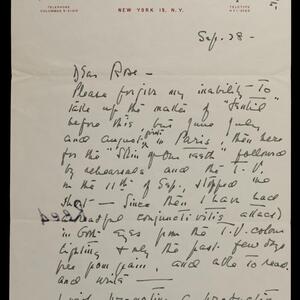 TELEPHONE
COLUMBUS 5-0100
NEW YORK 19, N.Y.
TELETYPE
Sep. 28 -
Dear Rose -
Please forgive my inability - to
take up the matter of
before this, but June July
and August in Paris, then here
for the "Skin of Our Teeth" followed
by rehearsals and the T.V.
on the 11th of Sep., stopped me
short - Since then I have had
conjunctivitis attack
in both eyes from the T.V. colour
lighting & only the past few days
free from pain, and able to read
and write -